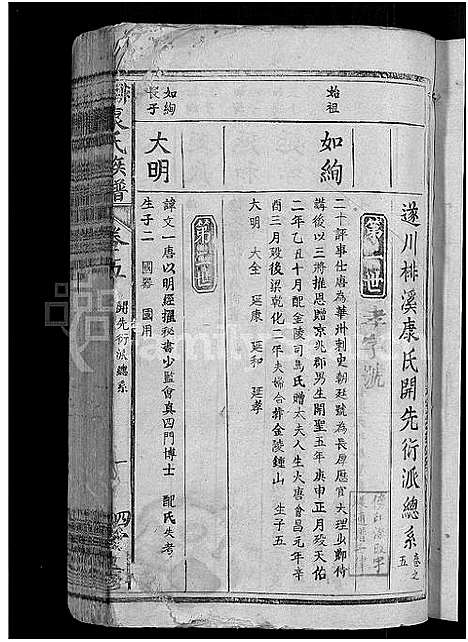 遂川棑溪康氏開先衍派總系 卷之五
第一世
孝字號
始祖
如絢
二十評事仕唐為華州刺史朝廷號為長厚歷官大理出鄭待
講後以三將推恩贈京兆郡男生開聖五年庚申正月歿天佑
二年乙丑十月配金陵司馬氏贈太夫人生大唐會昌元年辛
酉三月歿後梁乾化二年夫婦合葬金陵鍾山 生子五
大明 大全 延康 延和 延孝
第二世
如絢長子
大明
諱文一唐以明經擢秘書少監會真四門博士 配氏失考
生子二 國器 國用
康氏族譜
卷五
開先衍派總系